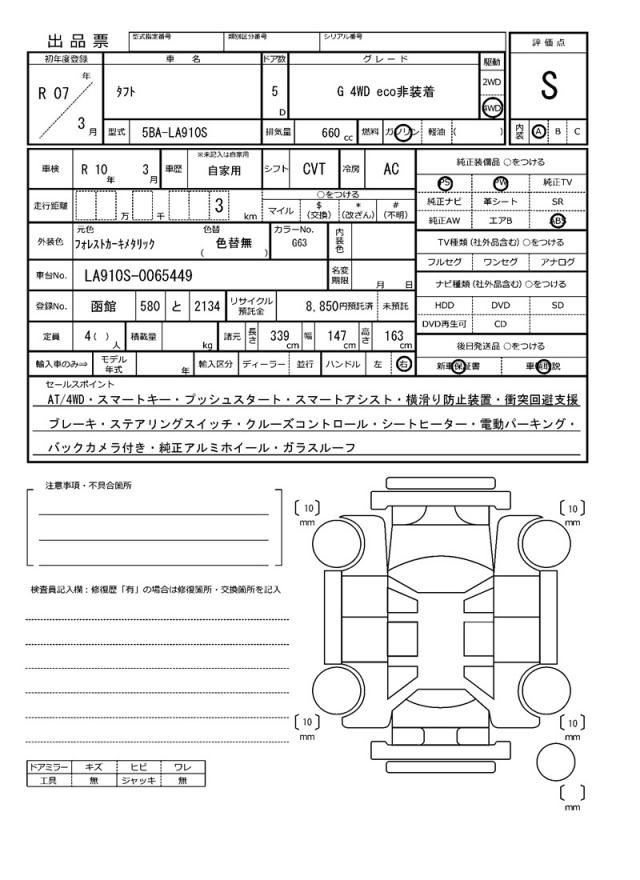 出品票 型式指定番号 類別区分番号 シリアル番号 評価点
初年度登録 車名 ドア数 グレード 駆動
R 07 年 3 月 タフト 5 D G 4WD eco非装着 2WD 4WD S
型式 5BA-LA910S 排気量 660 cc 燃料 ガソリン 軽油 ( ) 内装 A B C
車検 R 10 年 3 月 車歴 ※未記入は自家用 自家用 シフト CVT 冷房 AC 純正装備品 ○をつける
PS PW 純正TV
走行距離 万 千 3 km ○をつける
マイル $(交換) *(改ざん) #(不明) 純正ナビ 革シート SR
純正AW エアB ABS
外装色 元色 フォレストカーキメタリック 色替 ( 色替無 ) カラーNo. G63 内装色 TV種類 (社外品含む) ○をつける
フルセグ ワンセグ アナログ
車台No. LA910S-0065449 名変期限 月 日 ナビ種類 (社外品含む) ○をつける
登録No. 函館 580 と 2134 リサイクル預託金 8,850円預託済 未預託 HDD DVD SD
DVD再生可 CD
定員 4( ) 人 積載量 kg 諸元 長さ 339 cm 幅 147 cm 高さ 163 cm 後日発送品 ○をつける
輸入車のみ⇒ モデル年式 年 輸入区分 ディーラー 並行 ハンドル 左 右 新車保証書 車輌取説
セールスポイント
AT/4WD・スマートキー・プッシュスタート・スマートアシスト・横滑り防止装置・衝突回避支援
ブレーキ・ステアリングスイッチ・クルーズコントロール・シートヒーター・電動パーキング・
バックカメラ付き・純正アルミホイール・ガラスルーフ
注意事項・不具合箇所
〔 10 〕 mm 〔 10 〕 mm
検査員記入欄：修復歴「有」の場合は修復箇所・交換箇所を記入
〔 10 〕 mm 〔 10 〕 mm
ドアミラー キズ ヒビ ワレ
工具 無 ジャッキ 無
〔 〕 mm